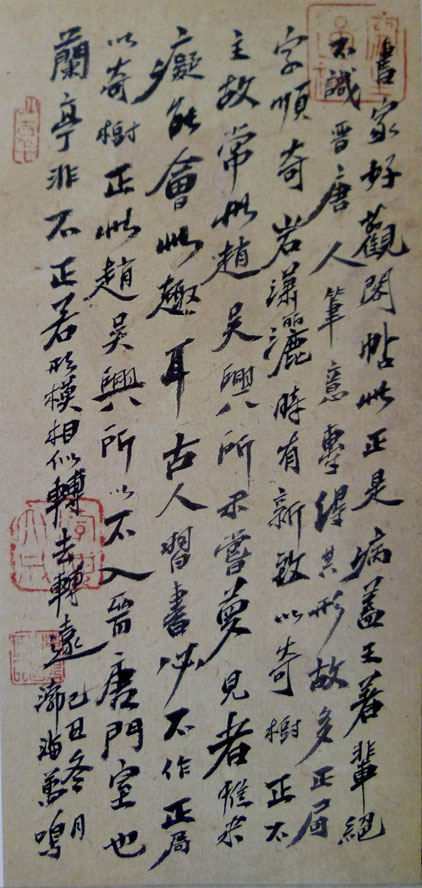 書家好觀閣帖此正是病蓋王著輩絕
不識晉唐人筆意專得其形故多正局
字順奇岩瀟灑時有新致以奇樹正不
主故常此趙吳興所不嘗夢見者惟米
癡能會此趣耳古人習書必不作正局
以奇樹正此趙吳興所以不入晉唐門室也
蘭亭非不正若形模相似轉去轉遠
己丑冬月